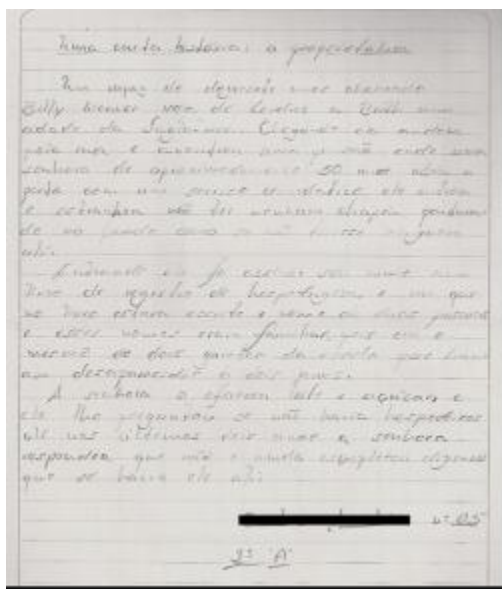 Numa curta história: a proprietária
Um rapaz de dezessete anos chamado
Billy Weaver vem de Londres a Bath uma
cidade da Inglaterra. Chegando ele andou
pela rua e encontrou uma onde uma
senhora de aproximadamente 50 anos abriu a
porta com um sorriso ele entrou
e estranhou não ter nenhum chapéu pendurado
do no como se não tivesse ninguém
ali.
Entrando ele foi assinar seu nome num
livro de registro de hospedagem e viu que
no livro estavam escrito o nome de duas pessoas
e esses nomes eram familiar, pois era o
mesmo de dois garotos da escola que
am desaparecido a dois anos.
A senhora o ofereceu chá e
ele lhe perguntou se não havia hospedeiros
ali nos últimos dois anos a senhora
respondeu que não e ainda completou dizendo
que só havia ele ali.
n° 05
2° "A"